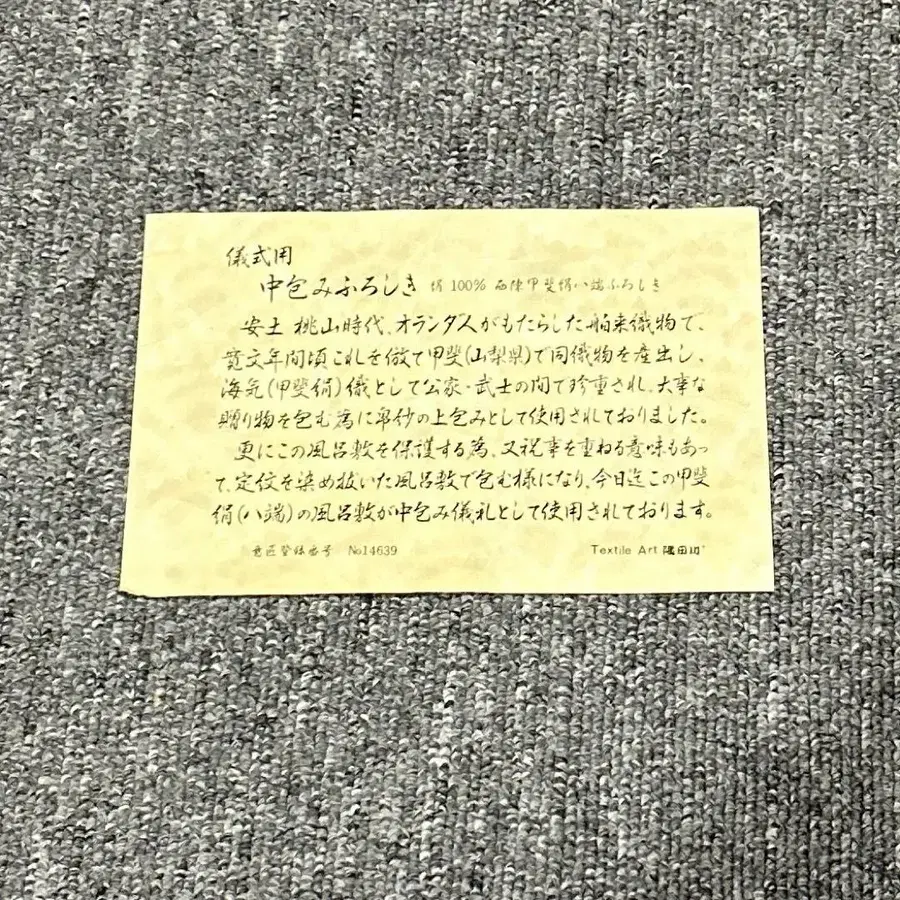 儀式用
中包みふろしき 絹 100% 西陣甲斐絹八端ふろしき
安土 桃山時代、オランダ人がもたらした舶来織物で、
寛文年間頃これを倣て甲斐(山梨県)で同織物を産出し、
海気(甲斐絹)儀として公家・武士の間で珍重され、大事な
贈り物を包む為に帛紗の上包みとして使用されておりました。
更にこの風呂敷を保護する為、又祝事を重ねる意味もあっ
て、定紋を染め抜いた風呂敷で包む様になり、今日迄この甲斐
絹(八端)の風呂敷が中包み儀礼として使用されております。
意匠登録番号 No14639
Textile Art 隅田